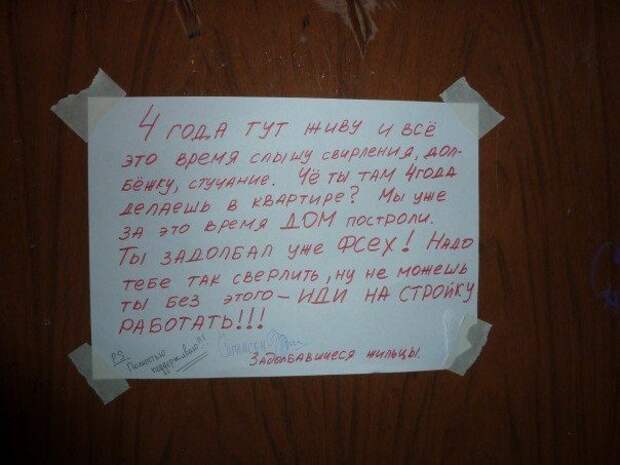 4 ГОДА ТУТ ЖИВУ И ВСЁ
ЭТО ВРЕМЯ СЛЫШУ СВИРЛЕНИЯ, ДОЛ-
БЁЖКУ, СТУЧАНИЕ. ЧЁ ТЫ ТАМ 4ГОДА
ДЕЛАЕШЬ В КВАРТИРЕ? МЫ УЖЕ
ЗА ЭТО ВРЕМЯ ДОМ ПОСТРОЛИ.
ТЫ ЗАДОЛБАЛ УЖЕ ФСЕХ! НАДО
ТЕБЕ ТАК СВЕРЛИТЬ, НУ НЕ МОЖЕШЬ
ТЫ БЕЗ ЭТОГО – ИДИ НА СТРОЙКУ
РАБОТАТЬ!!!
P.S.
Полностью
поддерживаю!!!
ЗАДОЛБАВШИЕСЯ ЖИЛЬЦЫ.